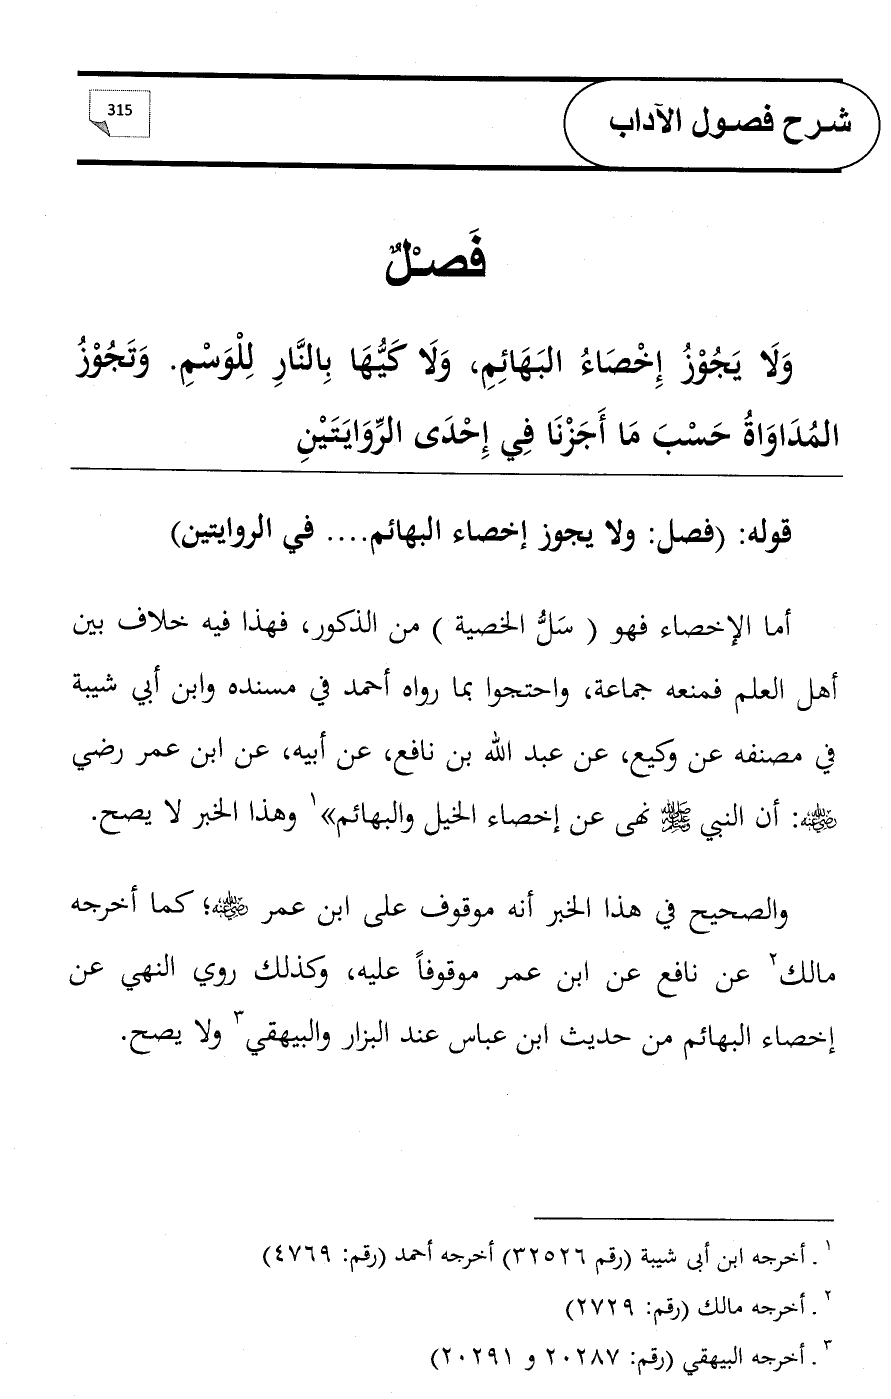 شرح فصول الآداب
315
فَصْلٌ
وَلَا يَجُوْزُ إِخْصَاءُ البَهَائِمِ، وَلَا كَيُّهَا بِالنَّارِ لِلْوَسْمِ. وَتَجُوْزُ
المُدَاوَاةُ حَسْبَ مَا أَجَزْنَا فِي إِحْدَى الرِّوَايَتَيْنِ
قوله: (فصل: ولا يجوز إخصاء البهائم.... في الروايتين)
أما الإخصاء فهو ( سَلُّ الخصية ) من الذكور، فهذا فيه خلاف بين
أهل العلم فمنعه جماعة، واحتجوا بما رواه أحمد في مسنده وابن أبي شيبة
في مصنفه عن وكيع، عن عبد الله بن نافع، عن أبيه، عن ابن عمر رضي
رضي الله عنه: أن النبي ﷺ نهى عن إخصاء الخيل والبهائم»١ وهذا الخبر لا يصح.
والصحيح في هذا الخبر أنه موقوف على ابن عمر رضي الله عنه؛ كما أخرجه
مالك٢ عن نافع عن ابن عمر موقوفاً عليه، وكذلك روي النهي عن
إخصاء البهائم من حديث ابن عباس عند البزار والبيهقي٣ ولا يصح.
١. أخرجه ابن أبى شيبة (رقم ٣٢٥٢٦) أخرجه أحمد (رقم: ٤٧٦٩)
٢. أخرجه مالك (رقم: ٢٧٢٩)
٣. أخرجه البيهقي (رقم: ٢٠٢٨٧ و ٢٠٢٩١)